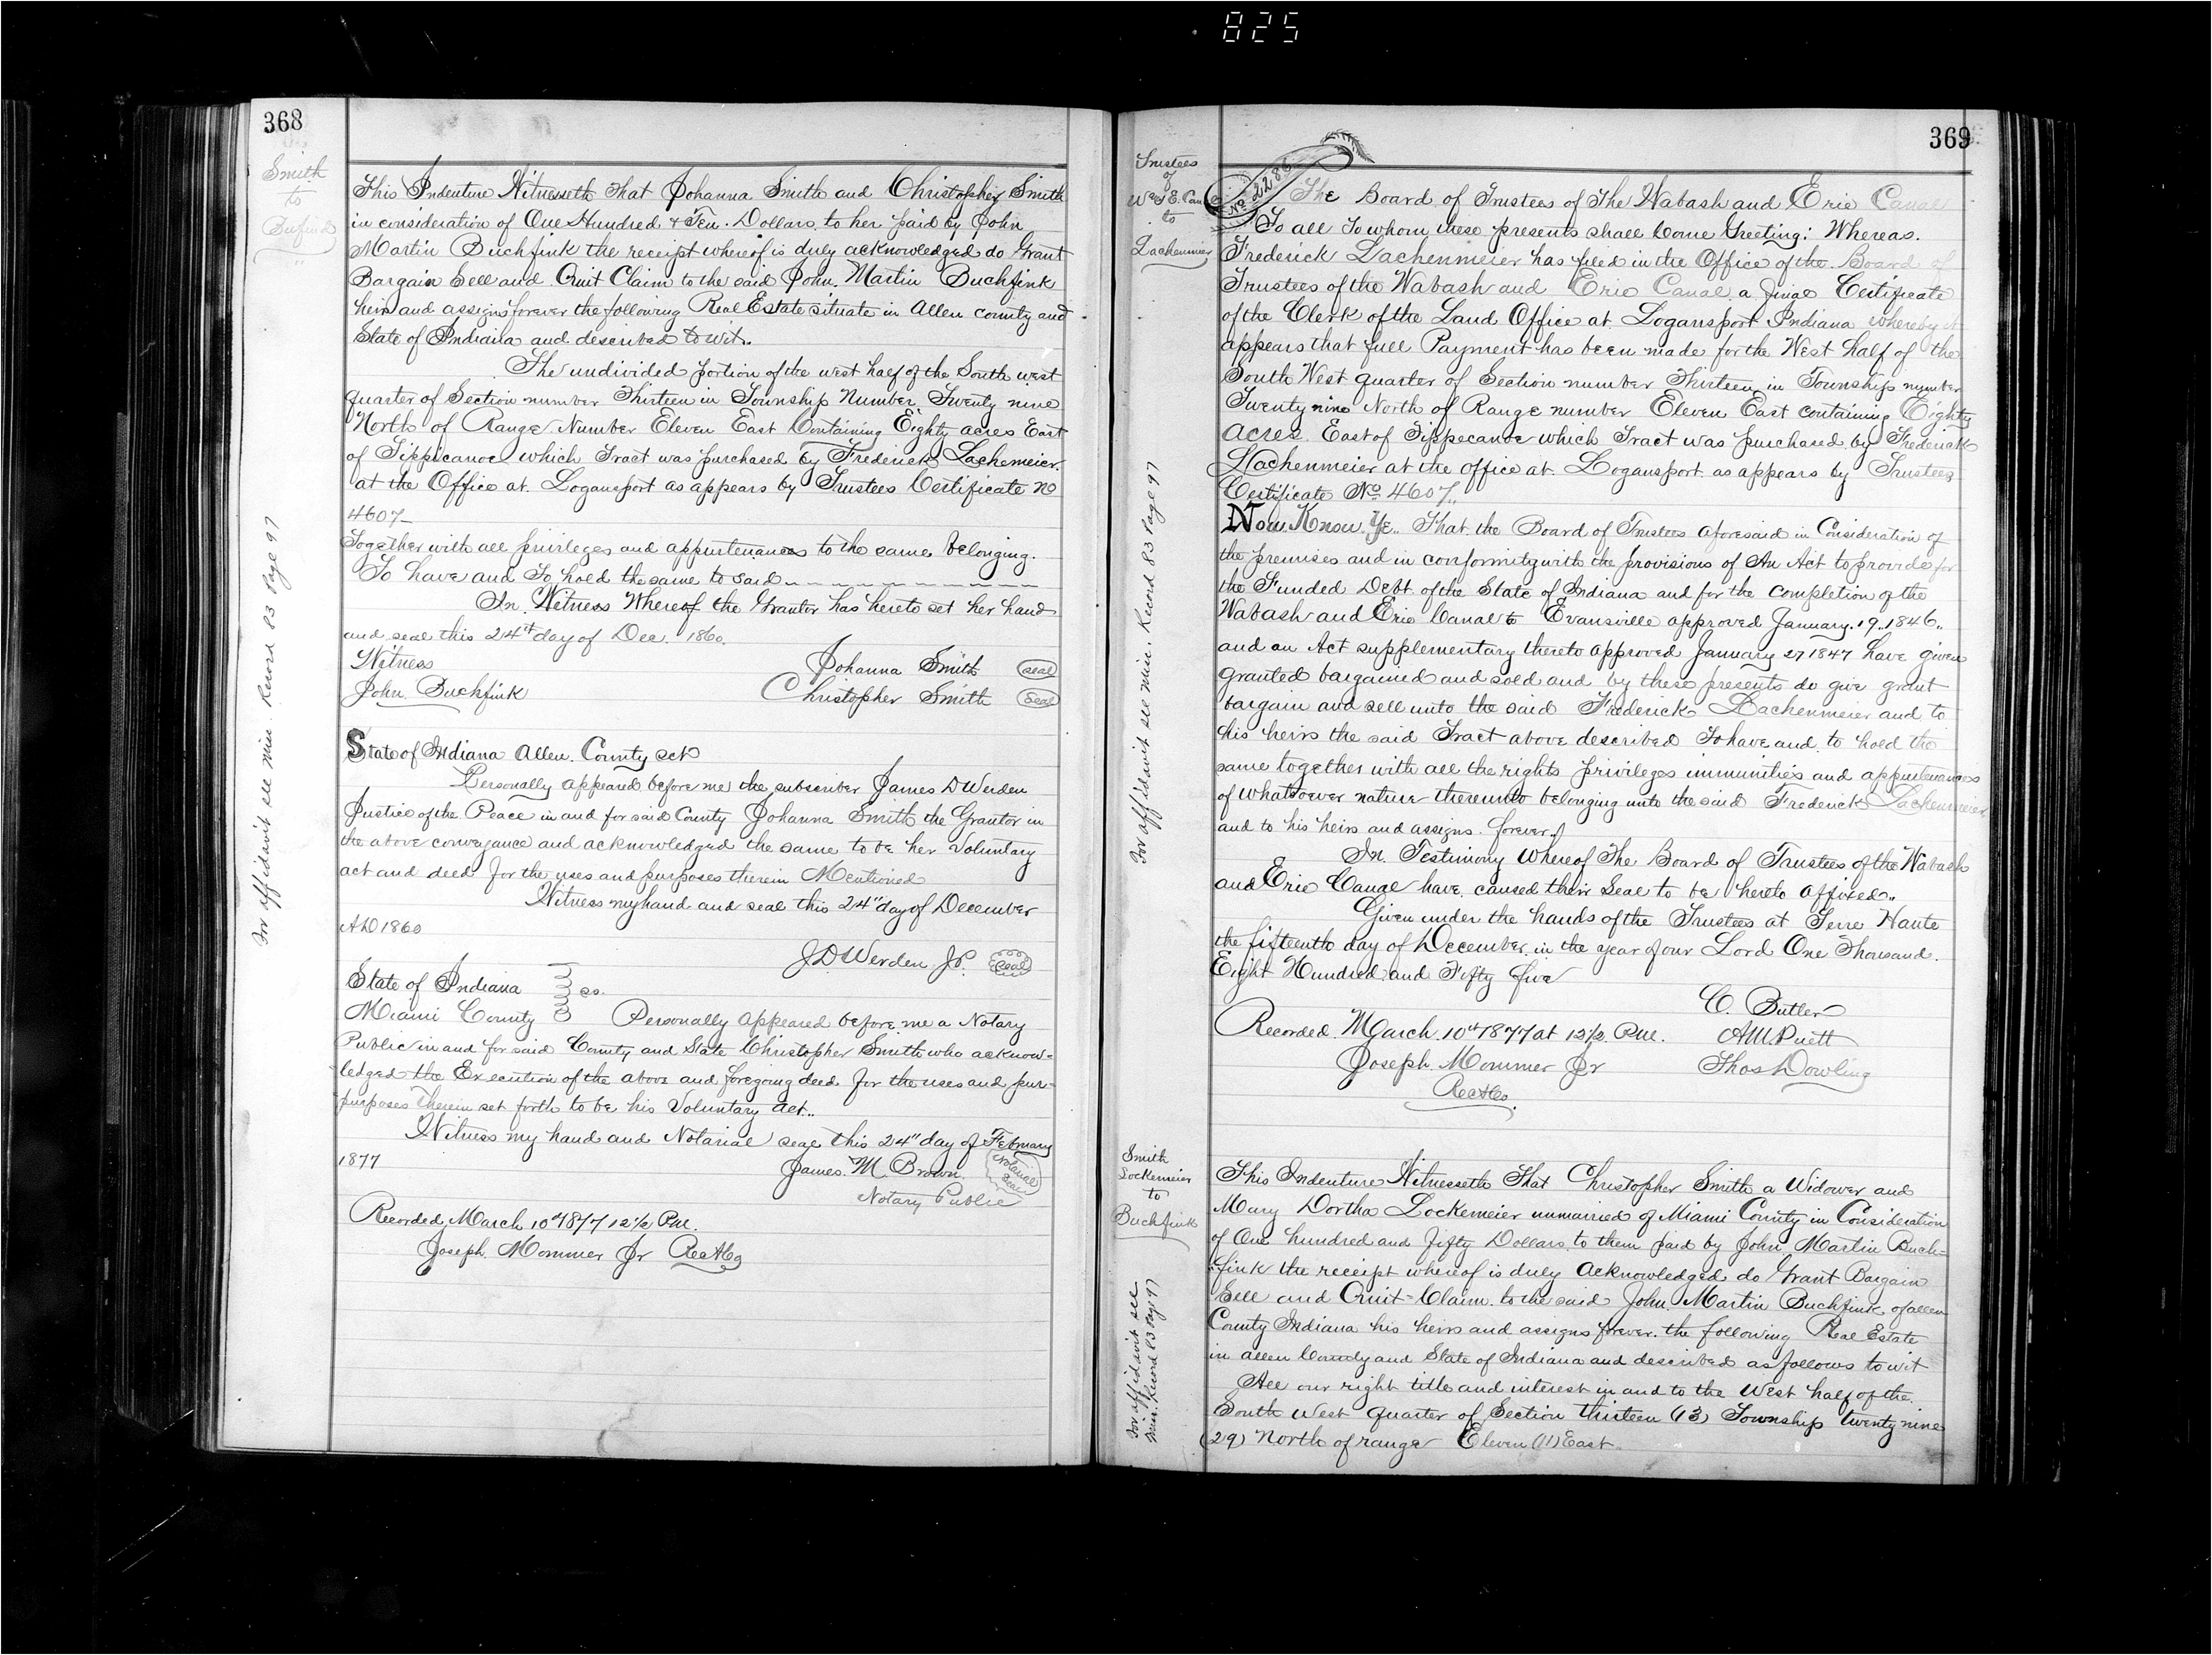 825
368
Smith
to
This Indenture Witnesseth That Johanna Smith and Christopher Smith
in consideration of One Hundred & Ten Dollars to her paid by John
Martin Buchfink the receipt whereof is duly acknowledged do Grant
Bargain Sell and Quit Claim to the said John Martin Buchfink
heirs and assigns forever the following Real Estate situate in Allen County and
State of Indiana and described to wit.
The undivided portion of the west half of the South west
quarter of Section number Thirteen in Township Number Twenty nine
North of Range Number Eleven East Containing Eighty acres East
of Tippicanoe which Tract was purchased by Frederick Lachemeier
at the Office at Logansport as appears by Trustees Certificate No
4607
Together with all privileges and appurtenances to the same belonging.
To have and To hold the same to said
In Witness Whereof the Grantor has hereto set her hand
and seal this 24th day of Dec. 1860.
Witness Johanna Smith seal
John Buchfink Christopher Smith Seal
State of Indiana Allen County sct
Personally appeared before me the subscriber James D Werden
Justice of the Peace in and for said County Johanna Smith the Grantor in
the above conveyance and acknowledged the same to be her Voluntary
act and deed for the uses and purposes therein Mentioned
Witness my hand and seal this 24" day of December
AD 1860
J.D. Werden J.P. Seal
State of Indiana
Miami County ss. Personally appeared before me a Notary
Public in and for said County and State Christopher Smith who acknow=
ledged the Execution of the above and foregoing deed for the uses and pur-
purposes therein set forth to be his Voluntary act..
Witness my hand and Notarial seal this 24" day of February
1877 James M. Brown Notarial Seal
Notary Public
Recorded March 10th 1877 12½ P.M.
Joseph Mommer Jr RecACo
For affidavit see Misc. Record 83 Page 97
369
Trustees
of
W & E. Can
to
Lachenmier
No 2286
The Board of Trustees of The Wabash and Erie Canal
To all To whom these presents shall Come Greeting: Whereas.
Frederick Lachenmeier has filed in the Office of the Board of
Trustees of the Wabash and Erie Canal a final Certificate
of the Clerk of the Land Office at Logansport Indiana whereby it
appears that full Payment has been made for the West half of the
South West quarter of Section number Thirteen in Township number
Twenty nine North of Range number Eleven East containing Eighty
Acres East of Tippecanoe which Tract was purchased by Frederick
Lachenmeier at the office at Logansport as appears by Trustees
Certificate No. 4607.
Now Know Ye.. That the Board of Trustees aforesaid in Consideration of
the premises and in conformity with the provisions of An Act to provide for
the Funded Debt of the State of Indiana and for the completion of the
Wabash and Erie Canal to Evansville approved January 19, 1846,
and an Act supplementary thereto approved January 27 1847 have given
granted bargained and sold and by these presents do give grant
bargain and sell unto the said Frederick Lachenmeier and to
his heirs the said Tract above described To have and to hold the
same together with all the rights privileges immunities and appurtenances
of whatsoever nature thereunto belonging unto the said Frederick Lachenmeier
and to his heirs and assigns forever.
In Testimony Whereof The Board of Trustees of the Wabash
and Erie Canal have caused their Seal to be hereto affixed..
Given under the hands of the Trustees at Terre Haute
the fifteenth day of December in the year of our Lord One Thousand
Eight Hundred and Fifty five
C. Butler
Recorded March 10th 1877 at 12½ P.M. A M Puett
Joseph Mommer Jr Thos Dowling
RecACo.
For affidavit see Misc. Record 83 Page 97
Smith
Lockemeier
to
Buchfink
This Indenture Witnesseth That Christopher Smith a Widower and
Mary Dortha Lockemeier unmarried of Miami County in Consideration
of One hundred and fifty Dollars to them paid by John Martin Buch=
fink the receipt whereof is duly acknowledged do Grant Bargain
Sell and Quit=Claim to the said John Martin Buchfink of allen
County Indiana his heirs and assigns forever the following Real Estate
in allen County and State of Indiana and described as follows to wit
All our right title and interest in and to the West half of the
South West quarter of Section thirteen (13) Township twenty nine
(29) North of range Eleven (11) East
For affidavit see
Misc. Record 83 Pag 97